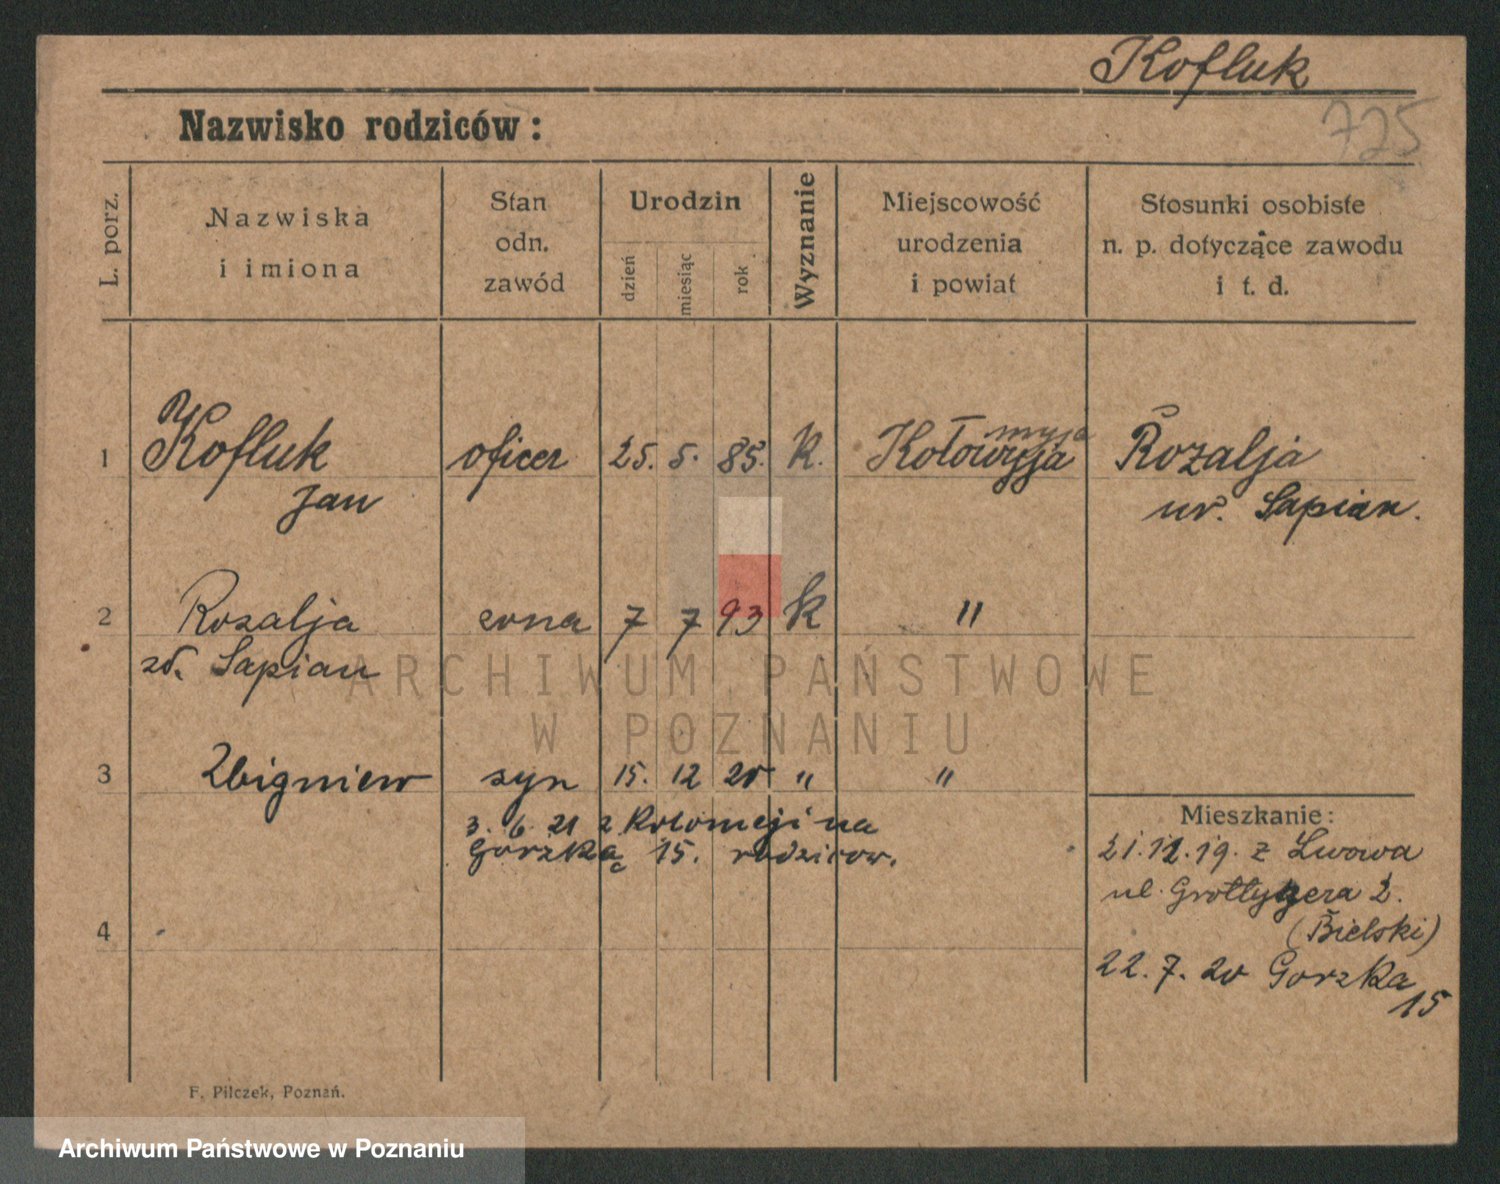 Kofluk
725
Nazwisko rodziców:
L. porz.
Nazwiska
i imiona
Stan
odn.
zawód
Urodzin
dzień
miesiąc
rok
Wyznanie
Miejscowość
urodzenia
i powiat
Stosunki osobiste
n. p. dotyczące zawodu
i t. d.
1 Kofluk oficer 25. 5. 85. k. Rozalja
Jan ur. Sapian.
2 Rozalja żona 7 7 93 k "
zd. Sapian
3 Zbigniew syn 15. 12 20 " "
3. 6. 21 z Kołomeji na
Gorzką 15. rodziców.
4
Mieszkanie:
21.12.19. z Lwowa
ul.
(Bielski)
22. 7. 20 Gorzka
15
F. Pilczek, Poznań.
ARCHIWUM PAŃSTWOWE
W POZNANIU
Archiwum Państwowe w Poznaniu